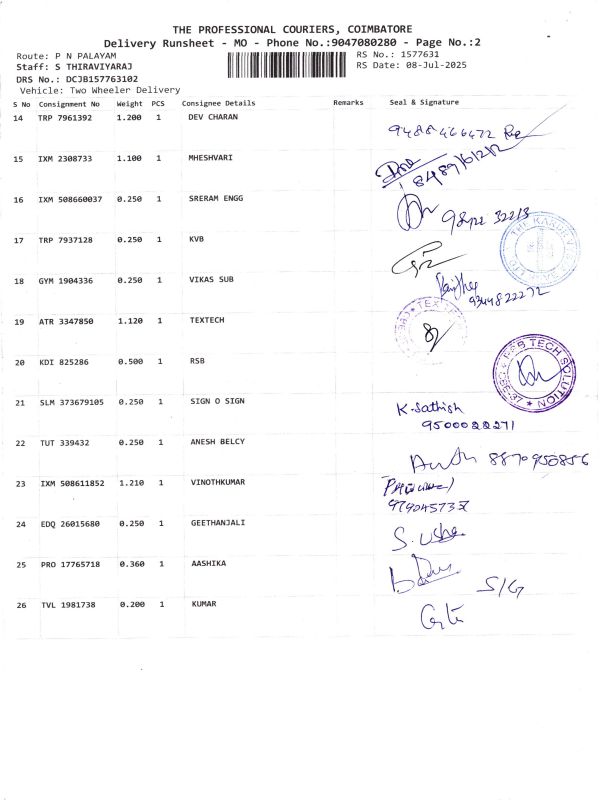 THE PROFESSIONAL COURIERS, COIMBATORE
Delivery Runsheet - MO - Phone No.:9047080280 - Page No.:2
Route: P N PALAYAM
RS No.: 1577631
Staff: S THIRAVIYARAJ
RS Date: 08-Jul-2025
DRS No.: DCJB157763102
Vehicle: Two Wheeler Delivery
S No Consignment No Weight PCS Consignee Details Remarks Seal & Signature
14 TRP 7961392 1.200 1 DEV CHARAN
15 IXM 2308733 1.100 1 MHESHVARI
16 IXM 508660037 0.250 1 SRERAM ENGG
17 TRP 7937128 0.250 1 KVB
18 GYM 1904336 0.250 1 VIKAS SUB
9344822272
19 ATR 3347850 1.120 1 TEXTECH
20 KDI 825286 0.500 1 RSB
RSB TECH SOLUTION
21 SLM 373679105 0.250 1 SIGN O SIGN K. Sathish
9500022271
22 TUT 339432 0.250 1 ANESH BELCY 8870950856
23 IXM 508611852 1.210 1 VINOTHKUMAR
24 EDQ 26015680 0.250 1 GEETHANJALI S. Usha
25 PRO 17765718 0.360 1 AASHIKA S/G
26 TVL 1981738 0.200 1 KUMAR